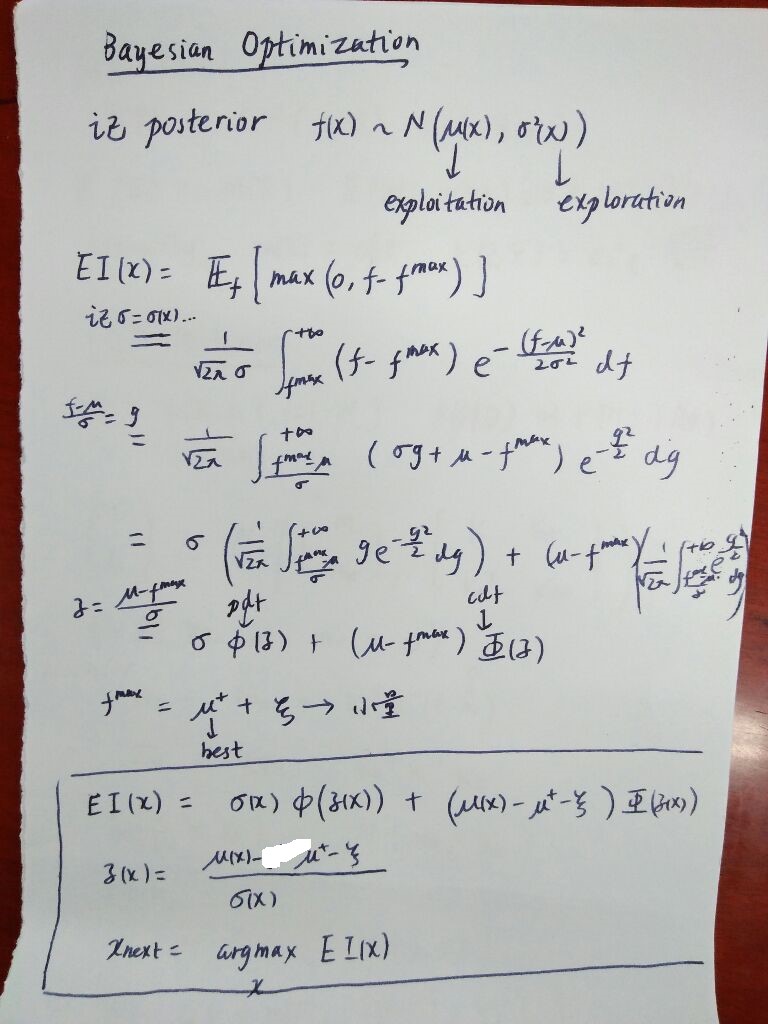 Bayesian Optimization
记 posterior f(x) ~ N(μ(x), σ²(x))
↓ ↓
exploitation exploration
EI(x) = 𝔼_f [max(0, f - f^max)]
记 σ = σ(x)...
= 1/(√2π σ) ∫_{f^max}^{+∞} (f - f^max) e^{-(f-μ)²/2σ²} df
(f-μ)/σ = g
= 1/√2π ∫_{(f^max-μ)/σ}^{+∞} (σg + μ - f^max) e^{-g²/2} dg
= σ (1/√2π ∫_{(f^max-μ)/σ}^{+∞} g e^{-g²/2} dg) + (μ - f^max) (1/√2π ∫_{(f^max-μ)/σ}^{+∞} e^{-g²/2} dg)
z = (μ - f^max)/σ pdf cdf
↓ ↓
= σ ϕ(z) + (μ - f^max) Φ(z)
f^max = μ⁺ + ξ → 小量
↓
best
EI(x) = σ(x) ϕ(z(x)) + (μ(x) - μ⁺ - ξ) Φ(z(x))
z(x) = (μ(x) - μ⁺ - ξ)/σ(x)
x_next = argmax EI(x)
x